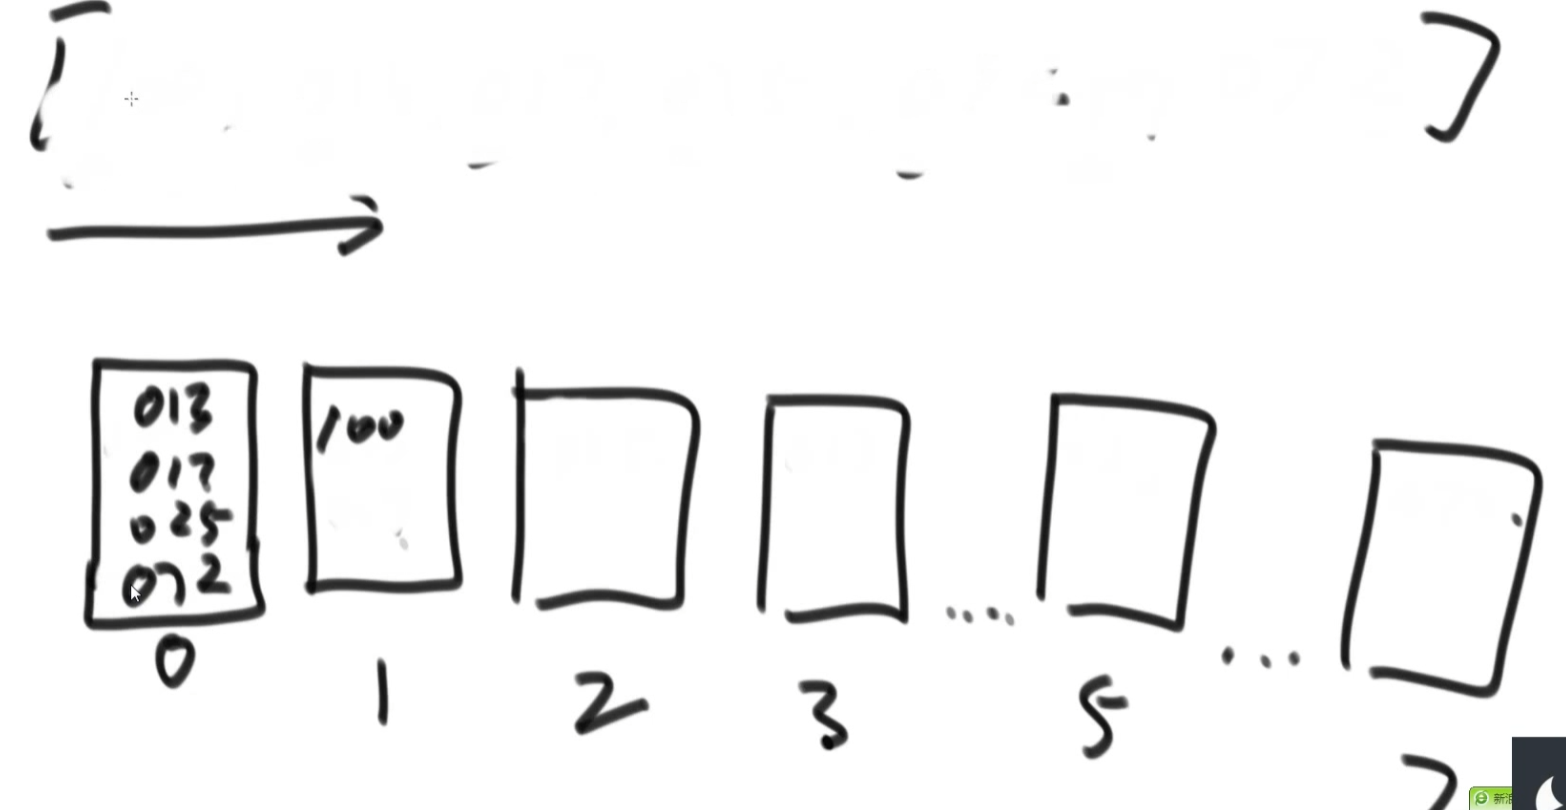 [ ]
013
017
025
072
100
....
...
0 1 2 3 5 7
新浪